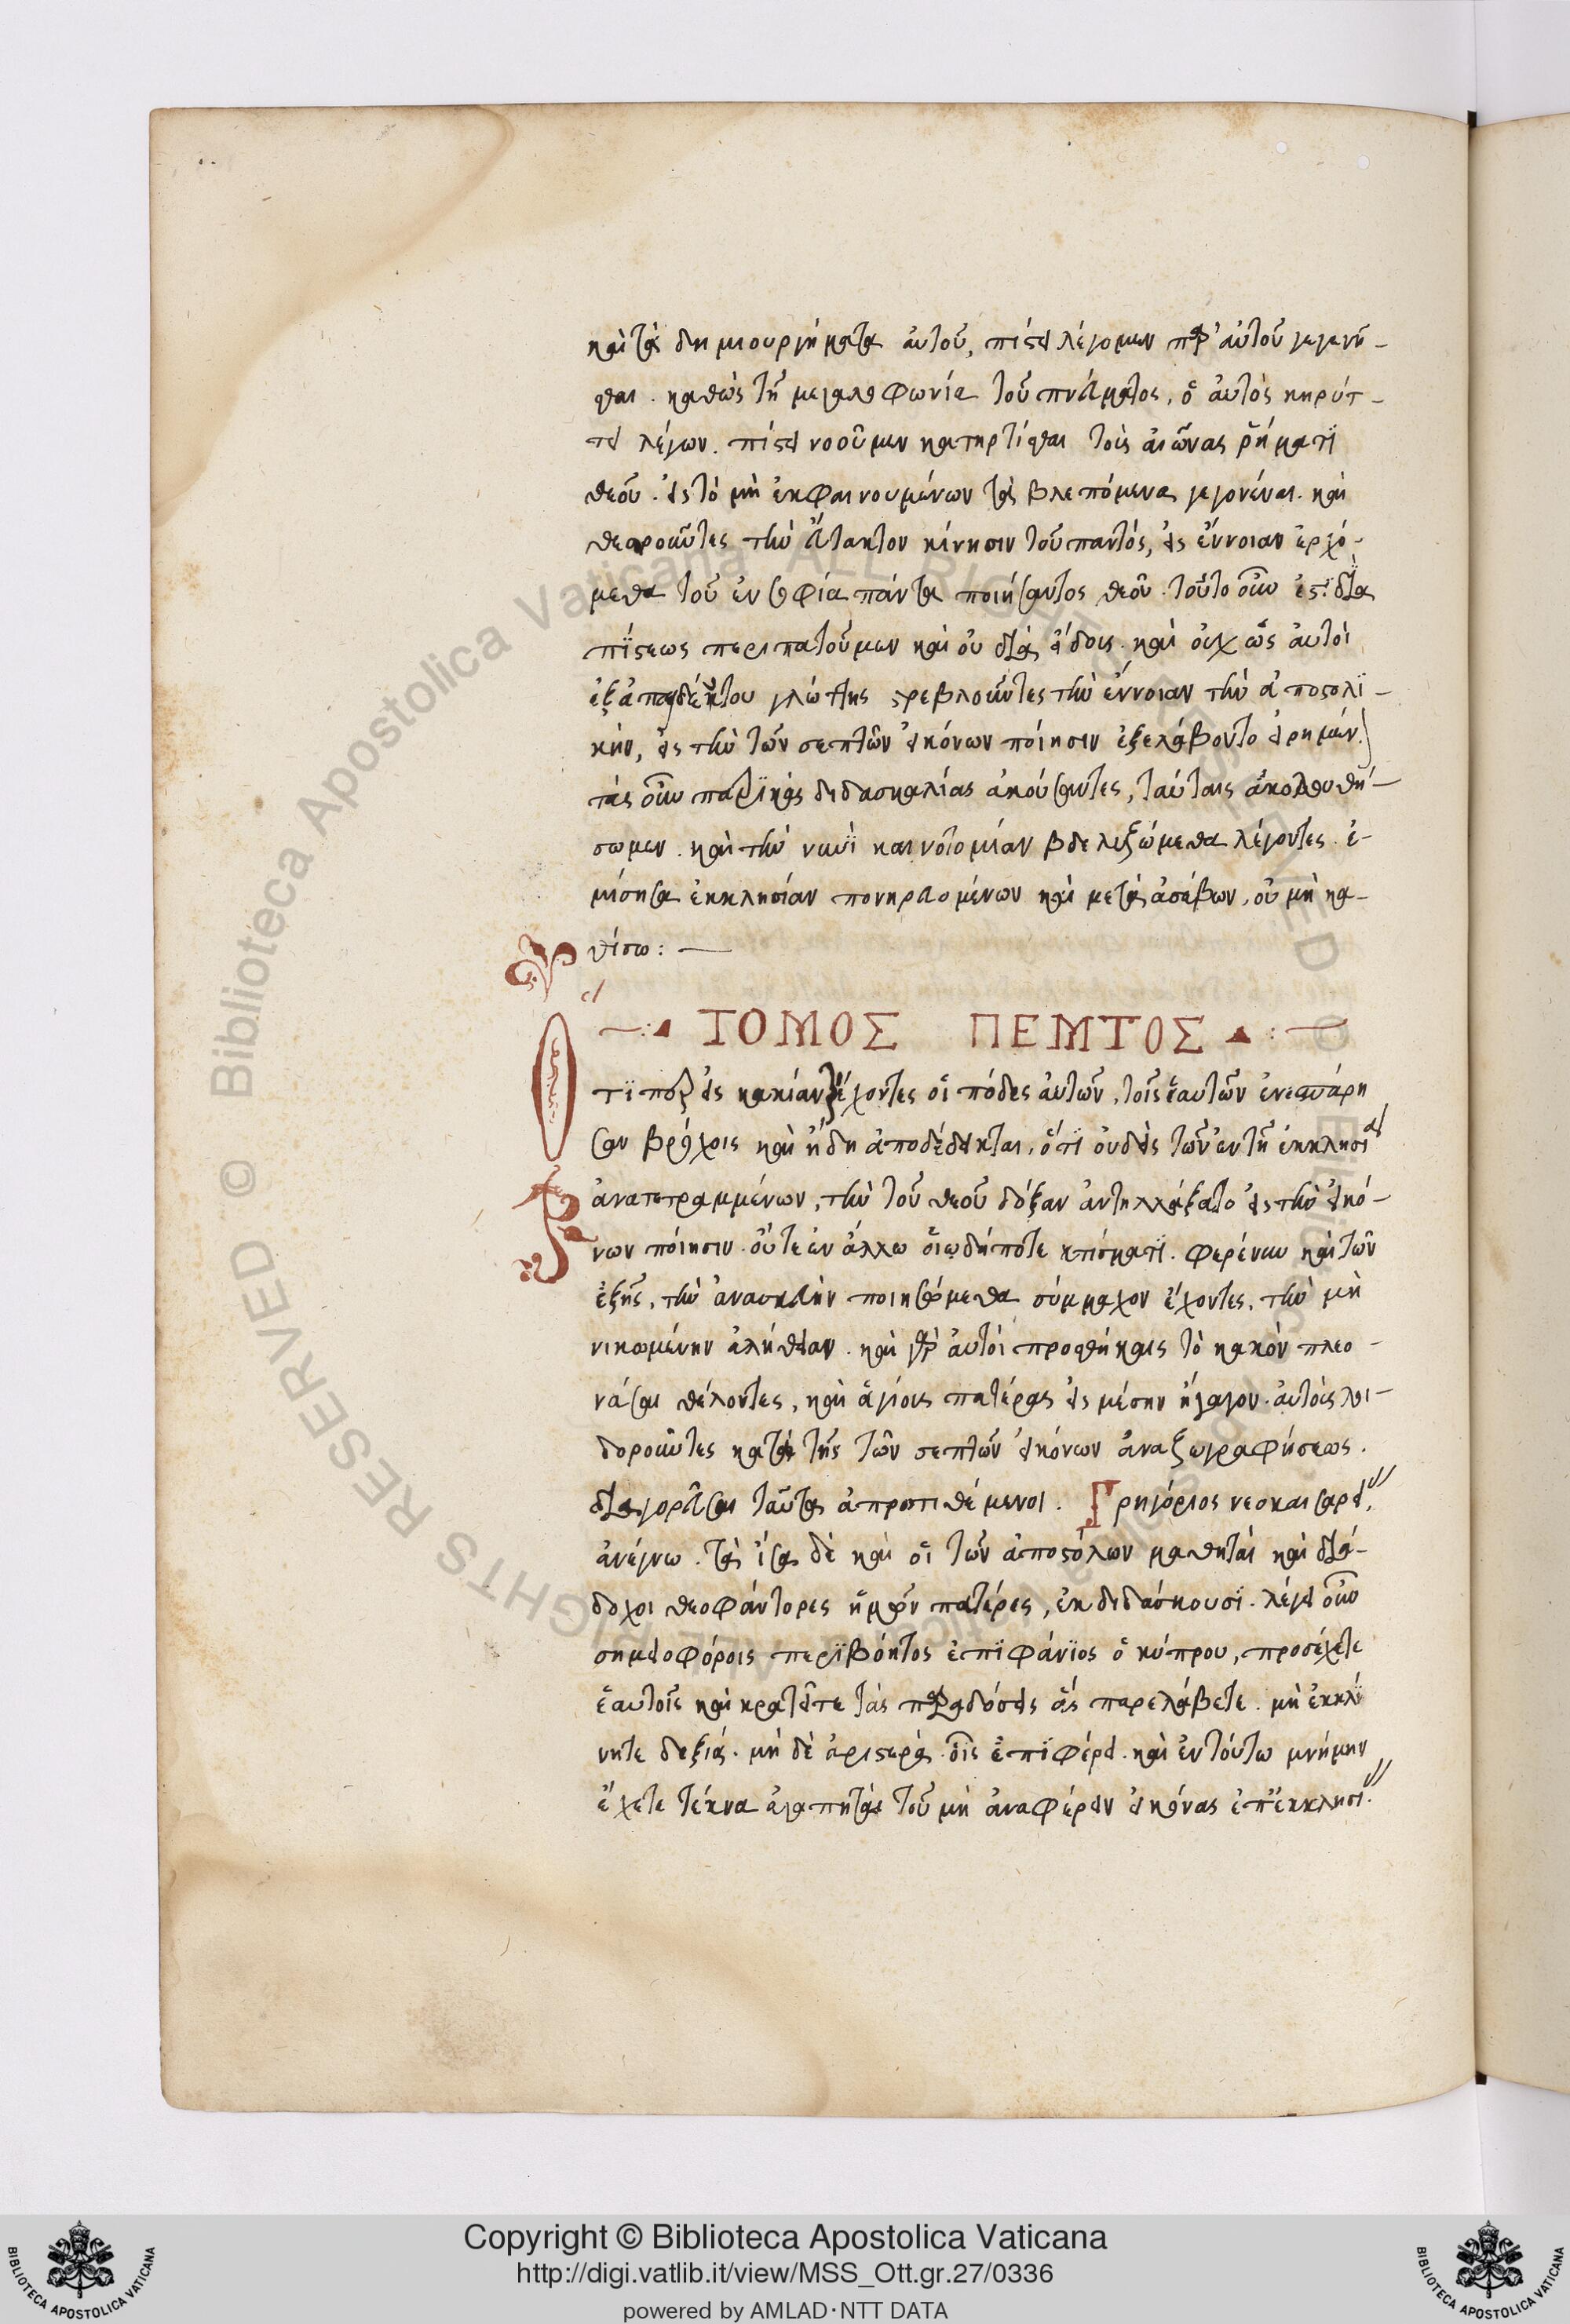 καὶ τὰ δημιουργήματα αὐτοῦ, πίστει λέγομεν παρ' αὐτοῦ γεγενῆ-
σθαι. καθὼς τῇ μεγαλοφωνία τοῦ πνεύματος, ὁ αὐτὸς κηρύτ-
τει λέγων. πίστει νοοῦμεν κατηρτίσθαι τοὺς αἰῶνας ῥήματϊ
θεοῦ. εἰς τὸ μὴ ἐκφαινουμένων τὰ βλεπόμενα γεγονέναι. καὶ
θεωροῦντες τὴν ἄτακτον κίνησιν τοῦ παντός, εἰς ἔννοιαν ἐρχό-
μεθα τοῦ ἐν σοφία πάντα ποιήσαντος θεοῦ. τοῦτο οὖν ἐστϊ διὰ
πίστεως περιπατοῦμεν καὶ οὐ διὰ εἴδους. καὶ οὐχ ὡς αὐτοὶ
ἐξ ἀπαιδεύτου γλώττης στρεβλοῦντες τὴν ἔννοιαν τὴν ἀποστολϊ-
κὴν, εἰς τὴν τῶν σεπτῶν εἰκόνων ποίησιν ἐξελάβοντο εἰρημέν.
τὰς οὖν πατρϊκὰς διδασκαλίας ἀκούσαντες, ταύταις ἀκολουθή-
σωμεν. καὶ τὴν νυνῒ καινοτομίαν βδελυξώμεθα λέγοντες. ἐ-
μίσησα ἐκκλησίαν πονηρευομένων καὶ μετὰ ἀσεβῶν, οὐ μὴ κα-
θίσω: —
ΤΟΜΟΣ ΠΕΜΤΟΣ
Ὅτϊ εἰς κακίαν τρέχοντες οἱ πόδες αὐτῶν, τοῖς ἑαυτῶν ἐνεσπάρη
σαν βρόχοις καὶ ἤδη ἀποδέδεικται, ὅτϊ οὐδεὶς τῶν ἐν τῇ ἐκκλησία
ἀνατετραμμένων, τὴν τοῦ θεοῦ δόξαν ἀντηλλάξατο εἰς τὴν εἰκό-
νων ποίησιν. οὔτε ἐν ἄλλω οἱωδήποτε κτίσματϊ. φερέναι καὶ τῶν
ἑξῆς, τὴν ἀνασκευὴν ποιησόμεθα σύμμαχον ἔχοντες, τὴν μὴ
νικωμένην ἀλήθειαν. καὶ γὰρ αὐτοὶ προσθήκαις τὸ κακὸν πλεο-
νάσαι θέλοντες, καὶ ἁγίους πατέρας εἰς μέσην ἤγαγον. αὐτοὺς λοι-
δοροῦντες κατὰ τῆς τῶν σεπτῶν εἰκόνων ἀναζωγραφήσεως.
διαγορεῦσαι ταῦτα ἀπροστιθέμενοι. Γρηγόριος νεοκαισαρεί.
ἀνέγνω. τὰ ἴσα δὲ καὶ οἱ τῶν ἀποστόλων μαθηταὶ καὶ διά-
δοχοι θεοφάντορες ἡμῶν πατέρες, ἐκδιδάσκουσϊ. λέγει οὖν
σημειοφόροις περϊβόητος ἐπϊφάνϊος ὁ κύπρου, προσέχετε
ἑαυτοῖς καὶ κρατεῖτε τὰς παραδόσεις ἃς παρελάβετε. μὴ ἐκκλϊ
νητε δεξιά. μὴ δὲ ἀριστερὰ. οἷς ἐπϊφέρει. καὶ ἐν τούτω μνήμην
ἔχετε τέκνα ἀγαπητὰ τοῦ μὴ ἀναφέρειν εἰκόνας ἐπ' ἐκκλησί.
Copyright © Biblioteca Apostolica Vaticana
http://digi.vatlib.it/view/MSS_Ott.gr.27/0336
powered by AMLAD·NTT DATA
BIBLIOTECA APOSTOLICA VATICANA
BIBLIOTECA APOSTOLICA VATICANA